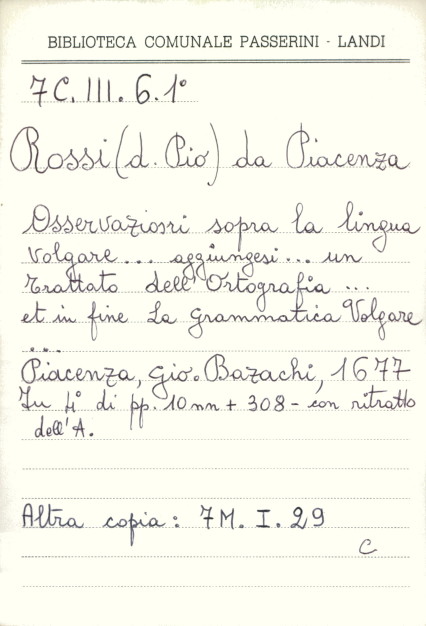 BIBLIOTECA COMUNALE PASSERINI - LANDI
7C. III. 6. 1°
Rossi (d. Pio) da Piacenza
Osservazioni sopra la lingua
volgare ... aggiungesi ... un
trattato dell'Ortografia ...
et in fine la grammatica Volgare
...
Piacenza, Gio. Bazachi, 1677
In 4° di pp. 10 nn + 308 - con ritratto
dell'A.
Altra copia: 7M. I. 29
C